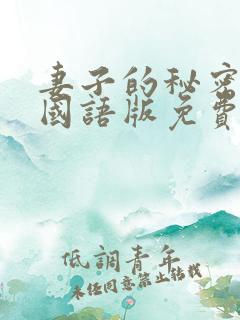 妻子的秘密
國語版免費
低調青年
未経同意禁止轉載